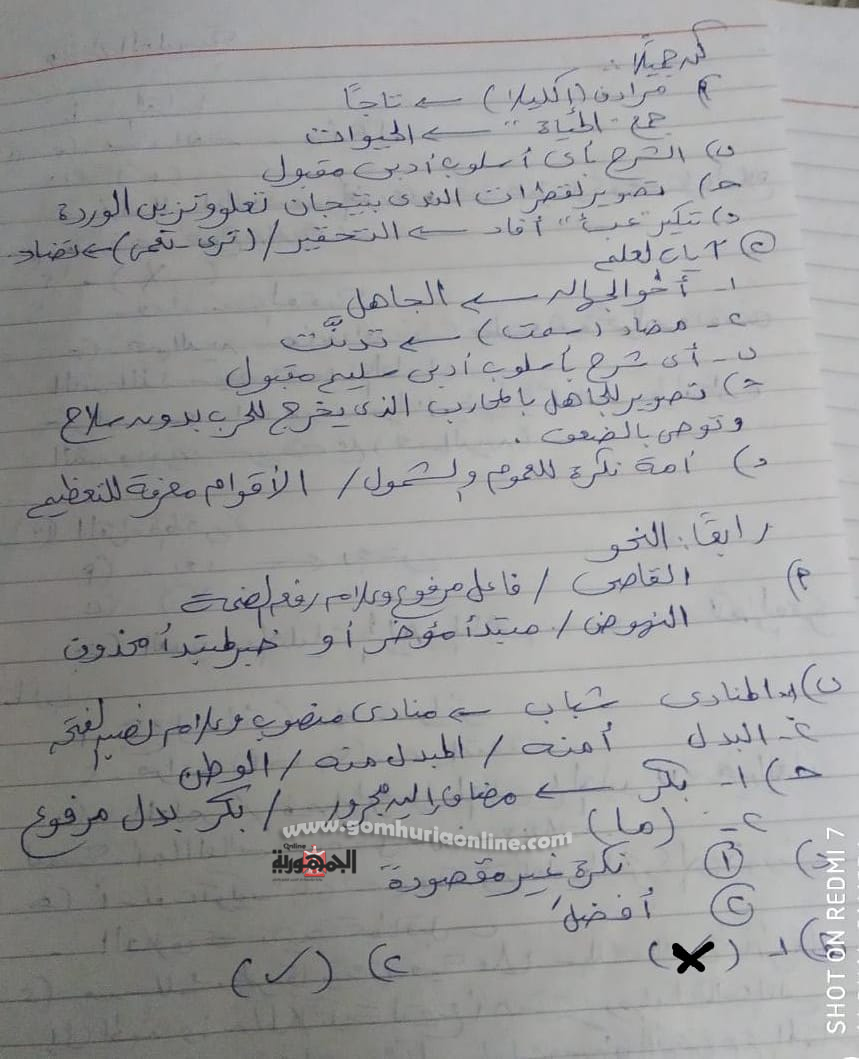 كن جميلًا :
أ) مرادف (إكليلا) ← تاجًا
جمع "الحياة" ← الحيوات
ب) الشرح بأى أسلوب أدبى مقبول
حـ) تصوير لقطرات الندى بتيجان تعلو وتزين الوردة
د) تنكير "عبئًا" أفاد ← التحقير / (ترى - تعمى) ← تضاد
٢ آيات لعلم
١- أخو الجهالة ← الجاهل
٢- مضاد (سمت) ← تدنَّت
ب- أى شرح بأسلوب أدبى سليم مقبول
حـ) تصوير للجاهل بالمحارب الذى يخرج للحرب بدون سلاح
وتوحى بالضعف .
د) أمة نكرة للعموم والشمول / الأقوام معرفة للتعظيم
رابعًا: النحو
أ) القاصى / فاعل مرفوع وعلامة رفعه الضمة
النهوض / مبتدأ مؤخر أو خبر لمبتدأ محذوف
ب) ١- المنادى شباب ← منادى منصوب وعلامة نصبه الفتحة
٢- البدل أمنه / المبدل منه / الوطن
حـ) ١- بكر ← مضاف إليه مجرور / بكر بدل مرفوع
٢- (ما)
www.gomhuriaonline.com
الجمهورية Online
د) ١ نكرة غير مقصودة
٢ أفضلَ
١ (✗) ٢) (✓)
SHOT ON REDMI 7